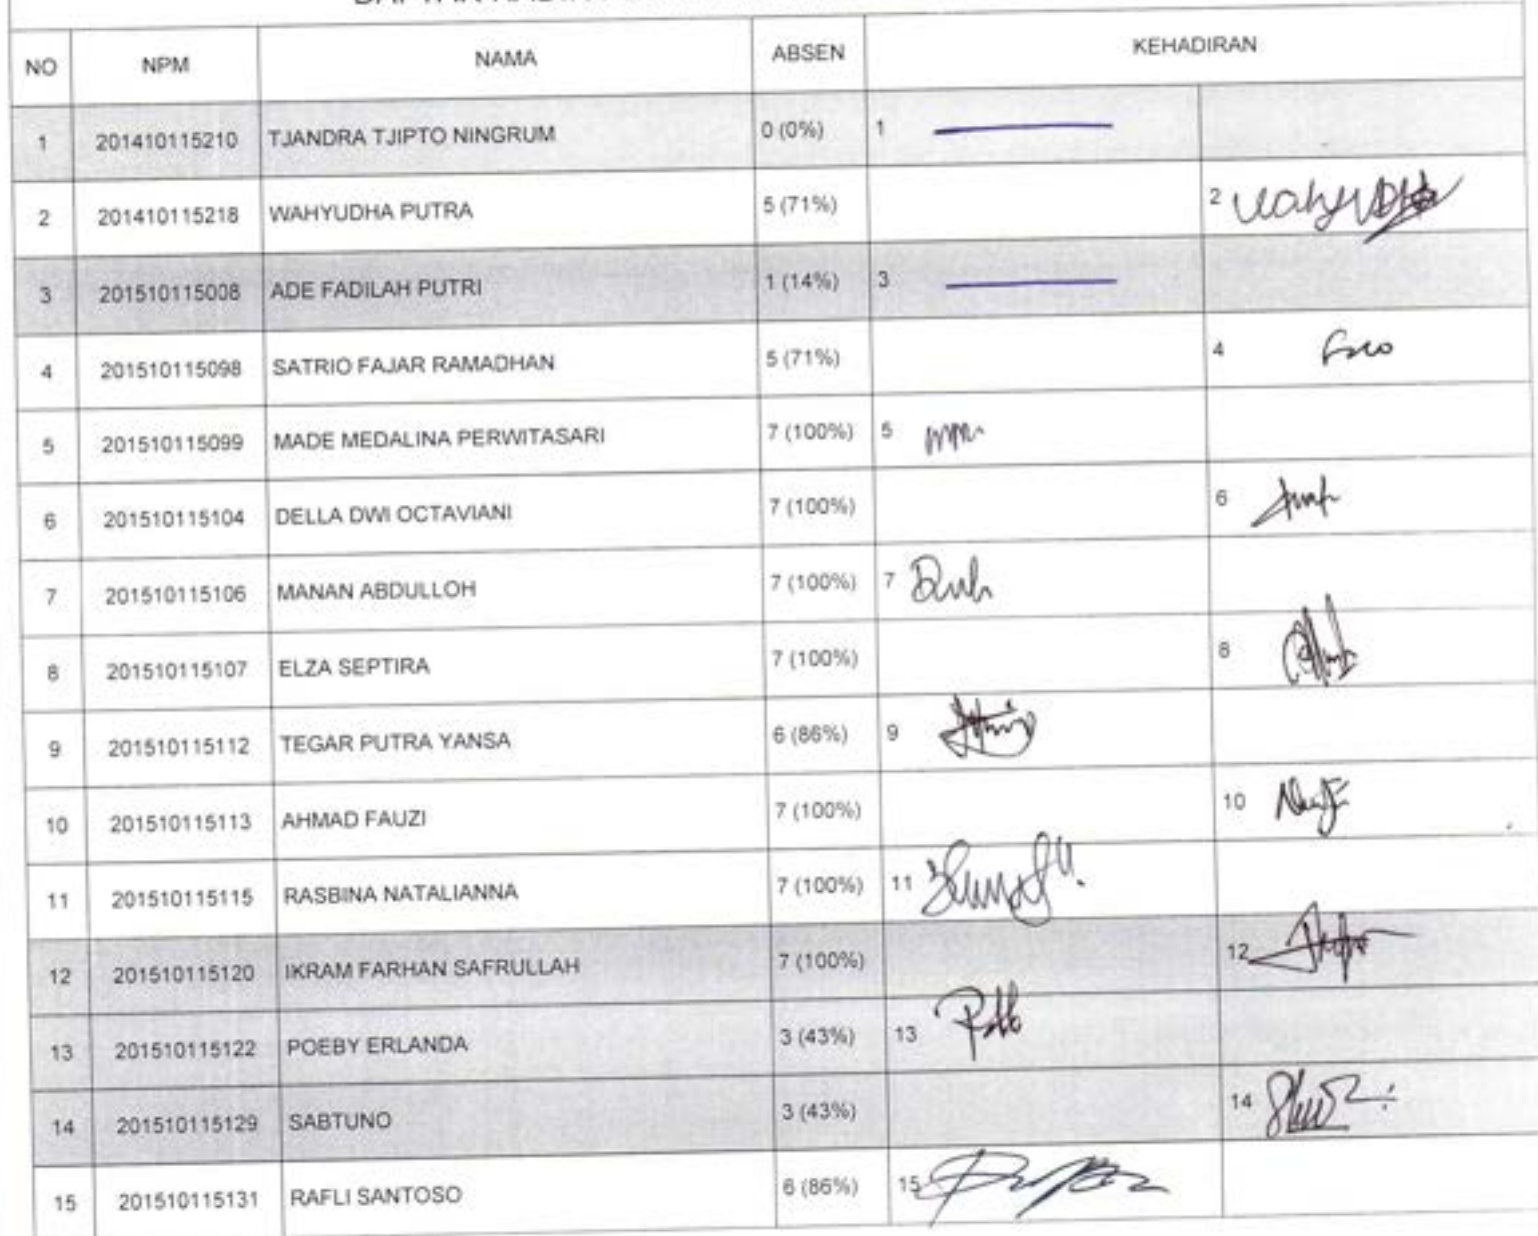 NO NPM NAMA ABSEN KEHADIRAN
1 201410115210 TJANDRA TJIPTO NINGRUM 0 (0%) 1
2 201410115218 WAHYUDHA PUTRA 5 (71%) 2
3 201510115008 ADE FADILAH PUTRI 1 (14%) 3
4 201510115098 SATRIO FAJAR RAMADHAN 5 (71%) 4
5 201510115099 MADE MEDALINA PERWITASARI 7 (100%) 5
6 201510115104 DELLA DWI OCTAVIANI 7 (100%) 6
7 201510115106 MANAN ABDULLOH 7 (100%) 7
8 201510115107 ELZA SEPTIRA 7 (100%) 8
9 201510115112 TEGAR PUTRA YANSA 6 (86%) 9
10 201510115113 AHMAD FAUZI 7 (100%) 10
11 201510115115 RASBINA NATALIANNA 7 (100%) 11
12 201510115120 IKRAM FARHAN SAFRULLAH 7 (100%) 12
13 201510115122 POEBY ERLANDA 3 (43%) 13
14 201510115129 SABTUNO 3 (43%) 14
15 201510115131 RAFLI SANTOSO 6 (86%) 15